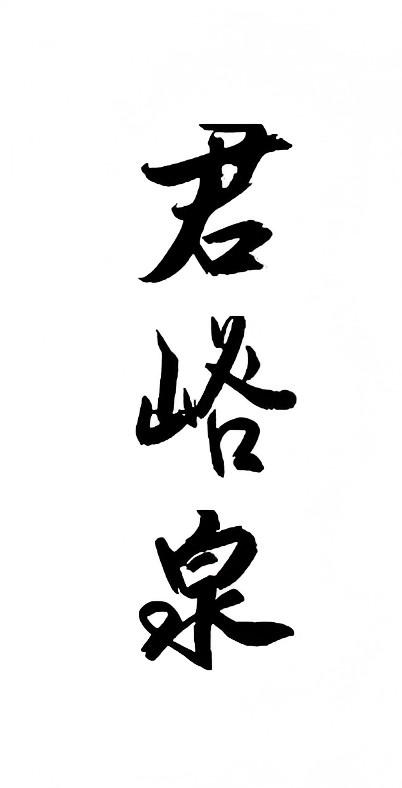 君峪泉